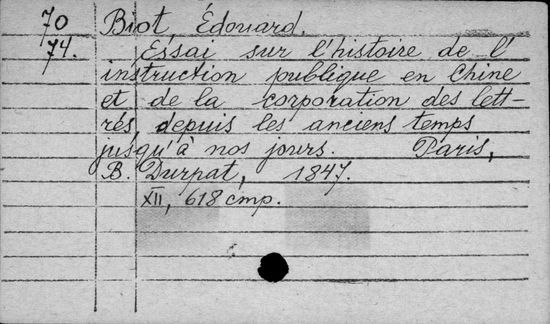 70 Biot Édouard.
74. Essai sur l'histoire de l'
instruction publique en Chine
et de la corporation des lett-
rés depuis les anciens temps
jusqu'à nos jours. Paris,
B. Durpat, 1847.
XII, 618 cmp.